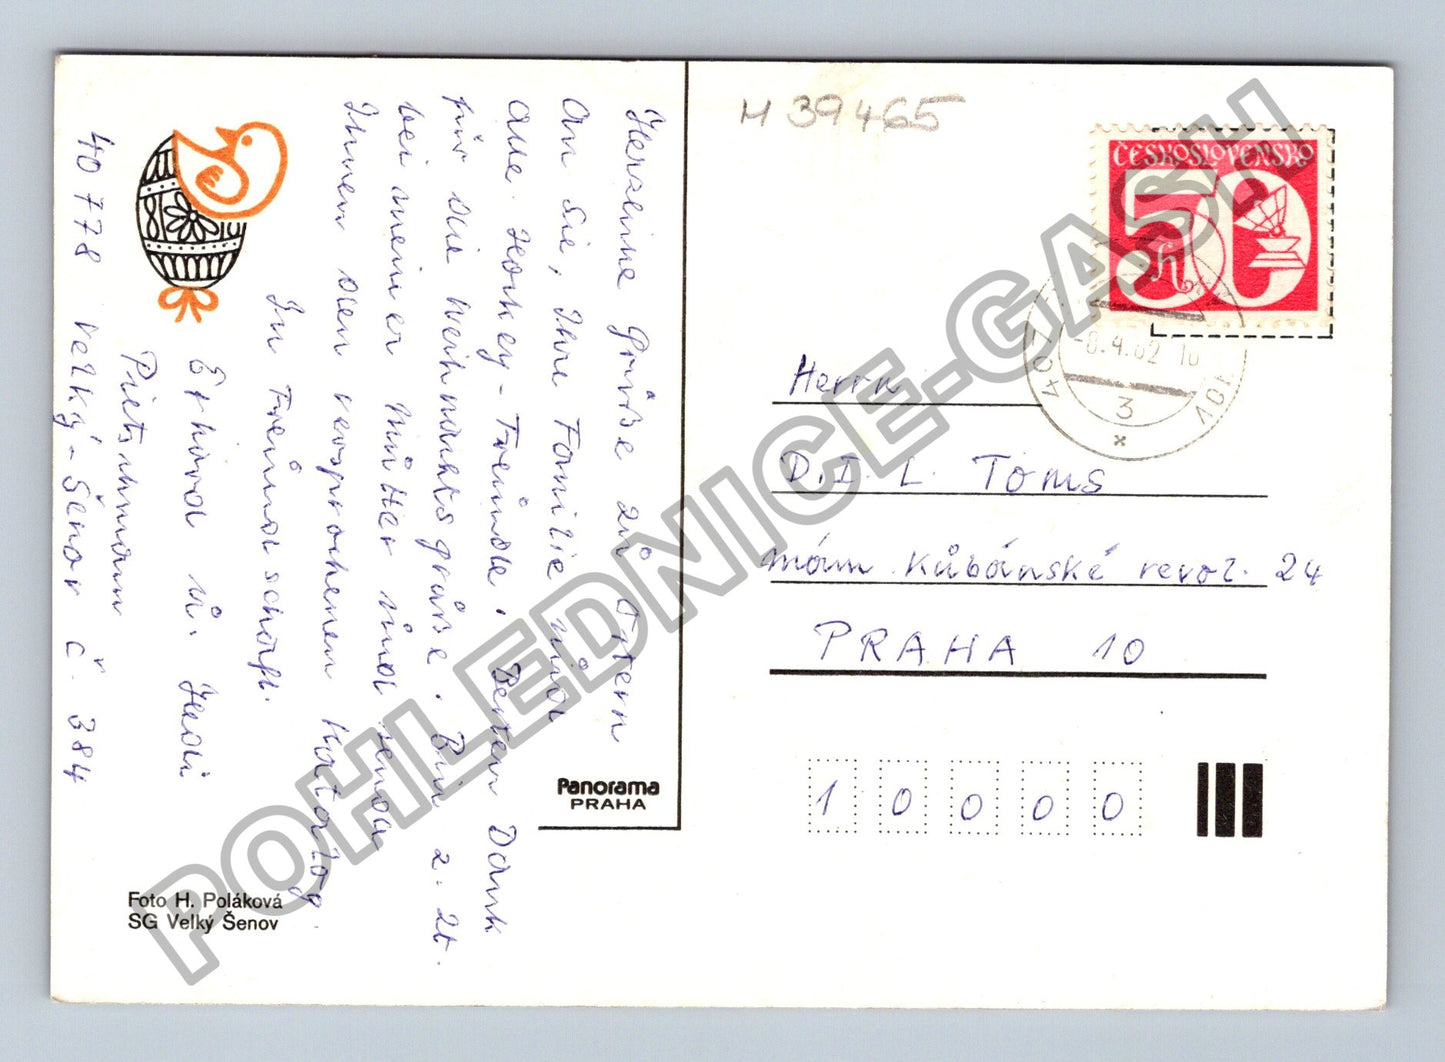 Herzliche Grüße zu Ostern
an Sie, Ihre Familie und
alle Hockey-Freunde. Besten Dank
für die Weihnachtsgrüße. Bin z. Zt.
bei meiner Mutter und habe
Ihnen den versprochenen Katalog.
In Freundschaft.
Erhard u. Hedi
Pietschmann
40778 Velký-Šenov č. 384
Foto H. Poláková
SG Velký Šenov
Panorama
PRAHA
H 39465
ČESKOSLOVENSKO
50
h
407
-8.4.82 16
3
Herrn
D.I. L. Toms
nám. Kubánské revol. 24
PRAHA 10
1 0 0 0 0
POHLEDNICE-GASH